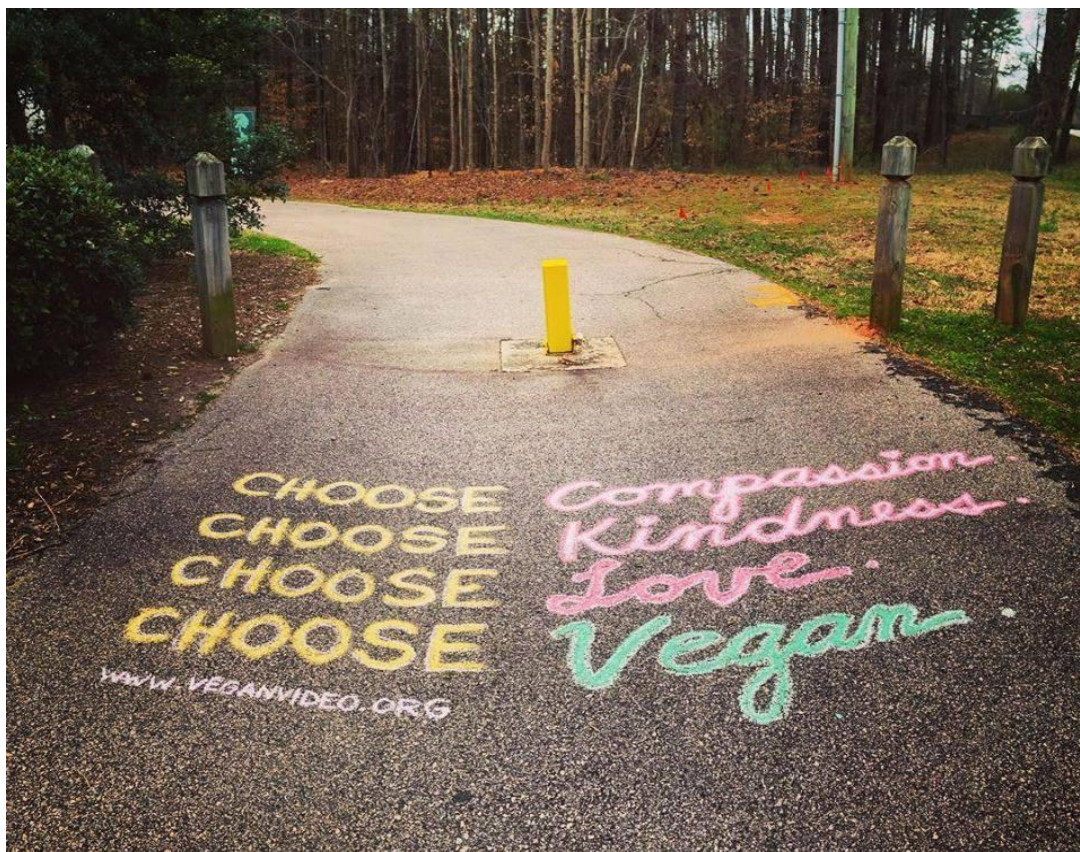 CHOOSE Compassion.
CHOOSE Kindness.
CHOOSE Love.
CHOOSE Vegan
WWW.VEGANVIDEO.ORG